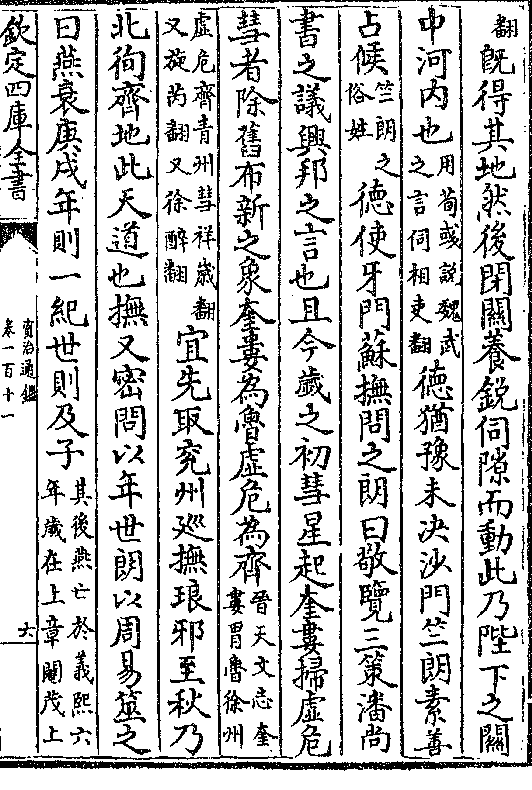 翻既得其地然後閉關養銳伺隙而動此乃陛下之關
中河内也用荀彧說魏武之言伺相吏翻德猶豫未决沙門竺朗素善
占候竺朗之俗姓德使牙門蘇撫問之朗曰敬覽三策潘尚
書之議興邦之言也且今歲之初彗星起奎婁掃虛危
彗者除舊布新之象奎婁為魯虛危為齊晉天文志奎婁胃魯徐州
虛危齊青州彗祥歲翻又旋芮翻又徐醉翻宜先取兖州廵撫琅邪至秋乃
北徇齊地此天道也撫又密問以年世朗以周易筮之
曰燕衰庚戌年則一紀世則及子其後燕亡於義熙六年歲在上章閹茂上
欽定四庫全書
資治通鑑
卷一百十一
六